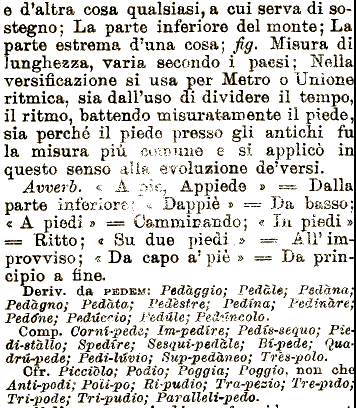 e d'altra cosa qualsiasi, a cui serva di so-
stegno; La parte inferiore del monte; La
parte estrema d'una cosa; fig. Misura di
lunghezza, varia secondo i paesi; Nella
versificazione si usa per Metro o Unione
ritmica, sia dall'uso di dividere il tempo,
il ritmo, battendo misuratamente il piede,
sia perché il piede presso gli antichi fu
la misura più comune e si applicò in
questo senso alla evoluzione de'versi.
Avverb. « A piè, Appiede » = Dalla
parte inferiore; « Dappiè » = Da basso;
« A piedi » = Camminando; « In piedi »
= Ritto; « Su due piedi » = All'im-
provviso; « Da capo a' piè » = Da prin-
cipio a fine.
Deriv. da PEDEM: Pedàggio; Pedàle; Pedàna;
Pedàgno; Pedàto; Pedèstre; Pedìna; Pedinàre;
Pedóne; Pedúccio; Pedúle; Pedúncolo.
Comp. Corní-pede; Im-pedíre; Pedís-sequo; Pie-
di-stàllo; Spedíre; Sesqui-pedàle; Bí-pede; Qua-
drú-pede; Pedi-lúvio; Sup-pedàneo; Très-polo.
Cfr. Picciòlo; Podio; Poggia; Poggio, non che
Anti-podi; Poli-po; Ri-pudio; Tra-pezio; Tre-pido;
Tri-pode; Tri-pudio; Paralleli-pedo.